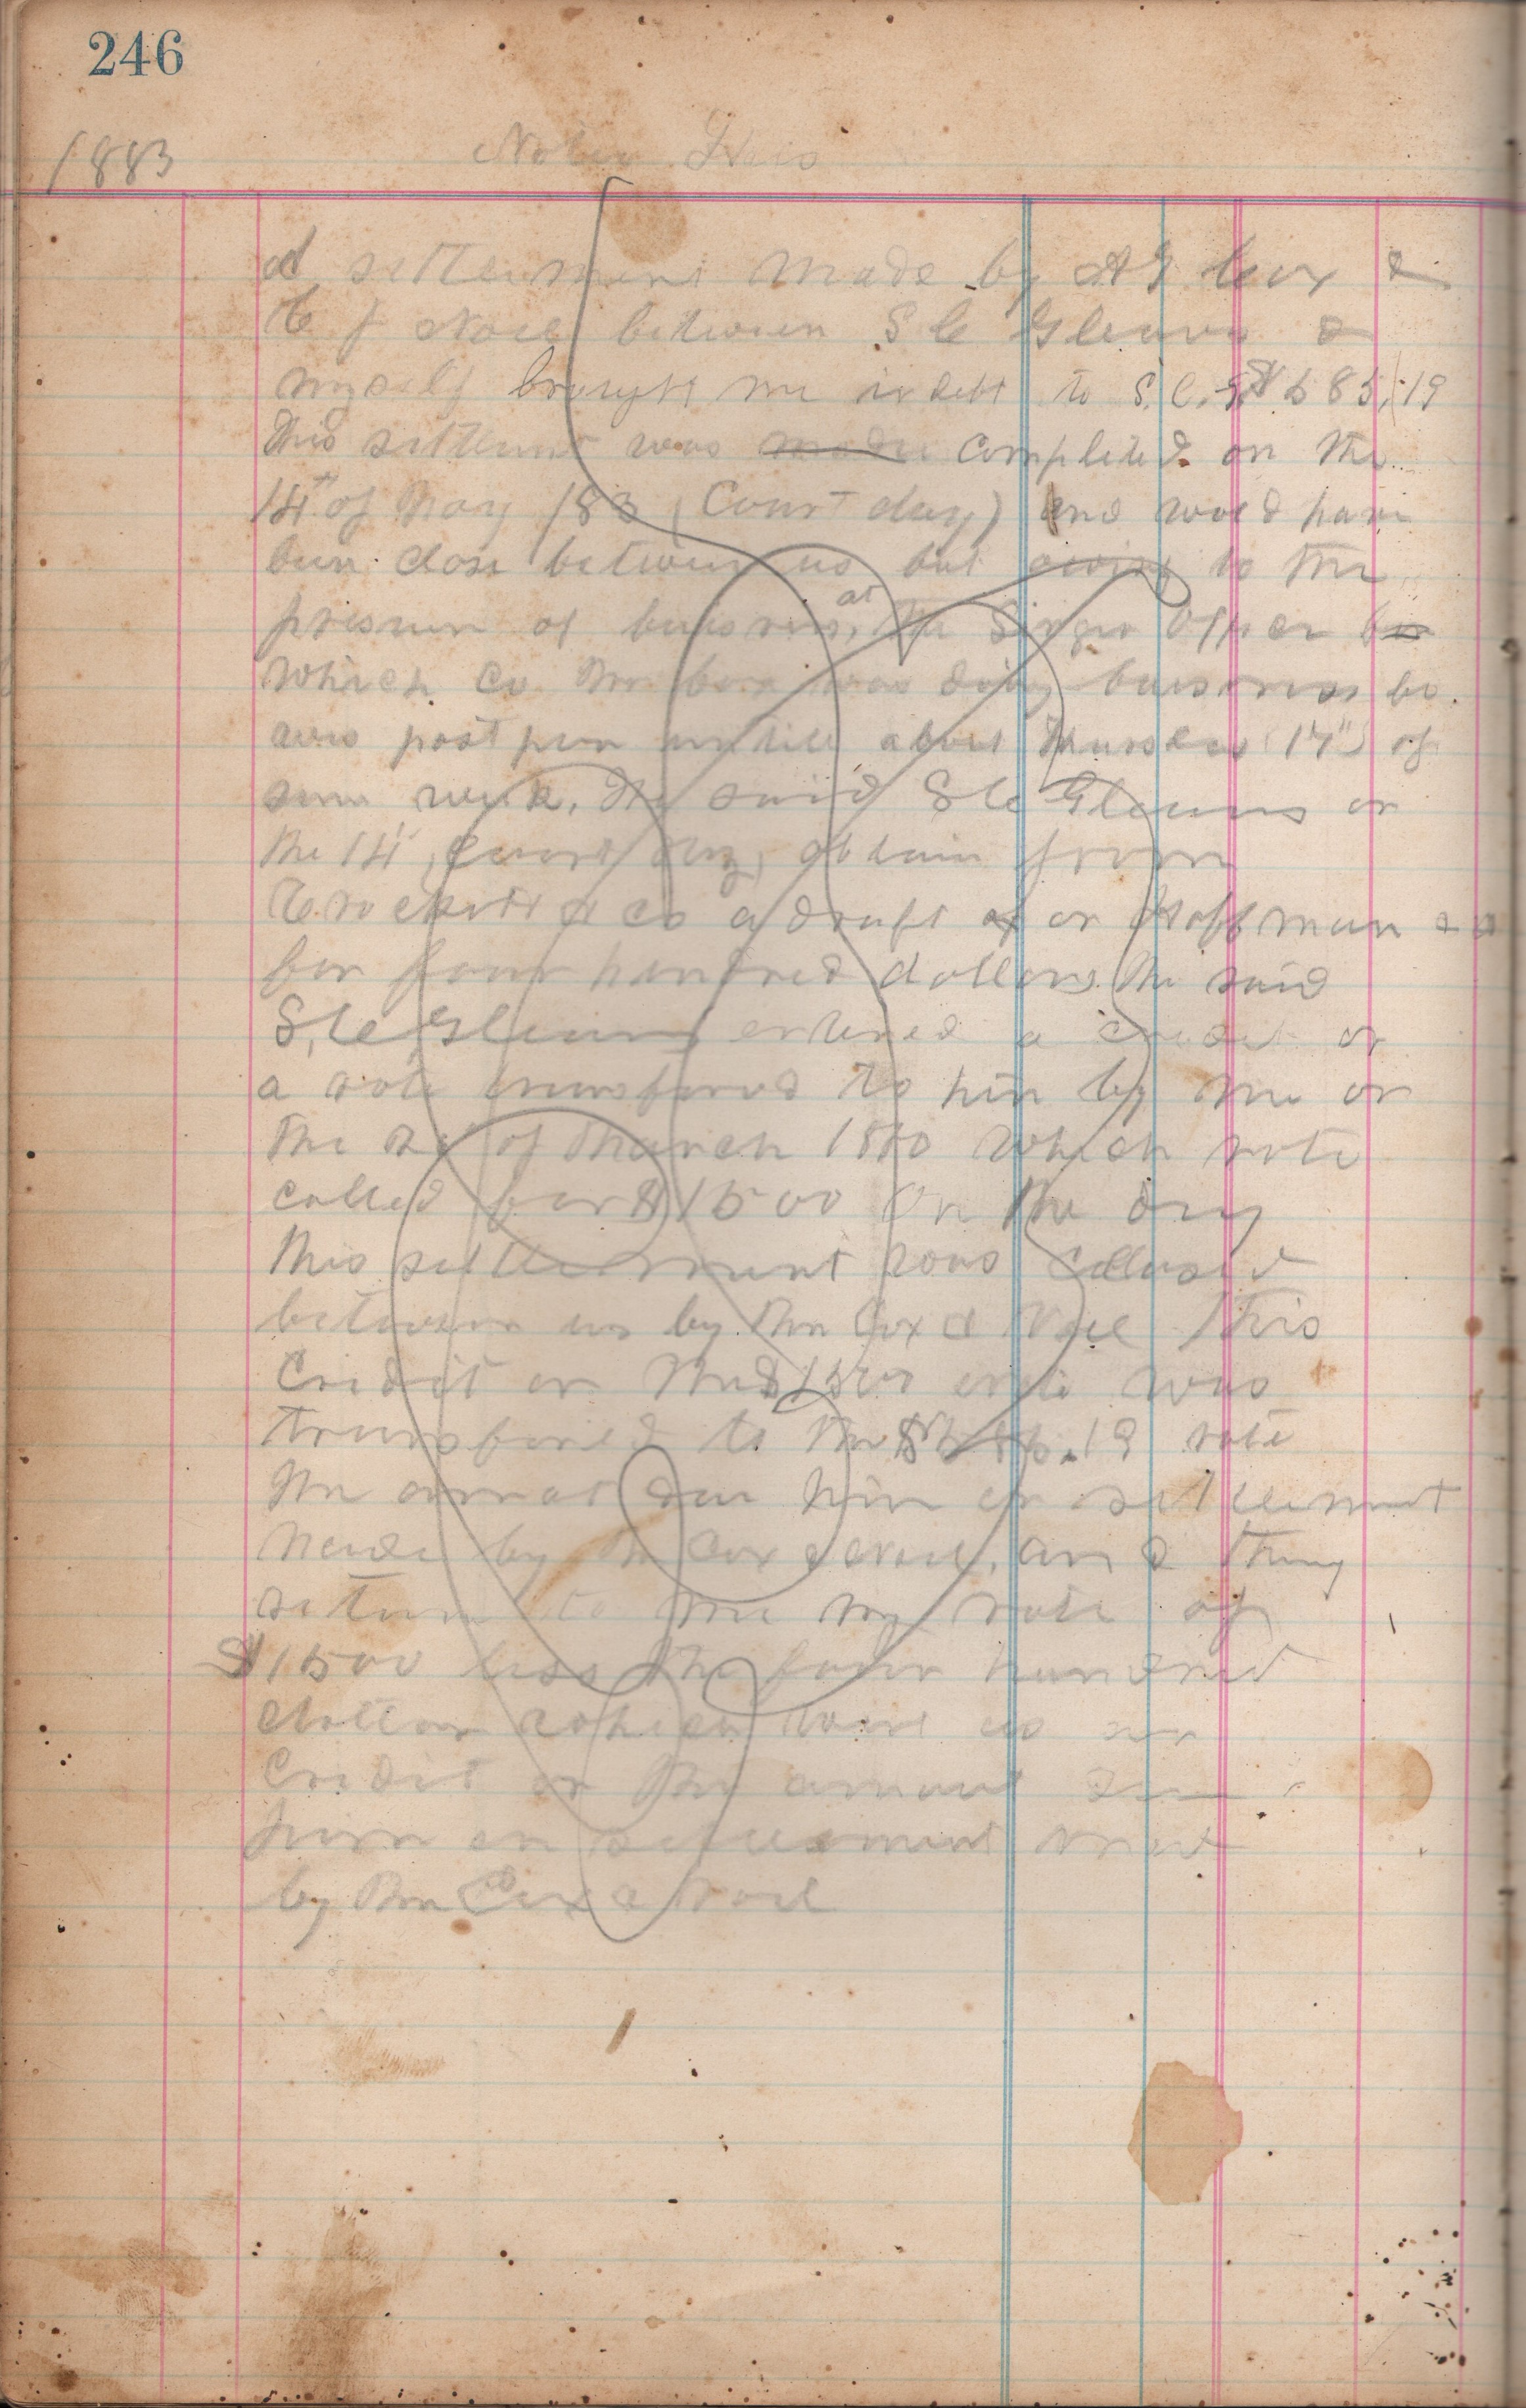 246
1883 Notice This
A settlement made by A G Cox &
C J Noel between S C Gleaves &
myself brought me in debt to S. C. G $585.19
This settlement was made completed on the
14" of May 183 (Court day) and would have
been close between us but owing to the
pressure of buisness, at the Singer Office
which Co Mr Cox was doing buisness
was postpon untill about Thursday (17") of
same week. The said S C Gleaves on
the 14", Court day, obtain from
Crockett & co a draft on Hoffman & co
for four hundred dollars. The said
S, C, Gleaves entered a credit on
a note transfered to him by me on
the of March 1880 which note
called for $1500 On the day
this settlement was
between us by Mr Cox & Noel this
Credit on the $1500 note was
transfered to the $585.19 note
the amount due him on settlement
made by Mr Cox & Noel, and they
return to me my note of
$1500 less the four hundred
dollar which went as an
Credit on the amount due
him on settlement
by Mr Cox & Noel